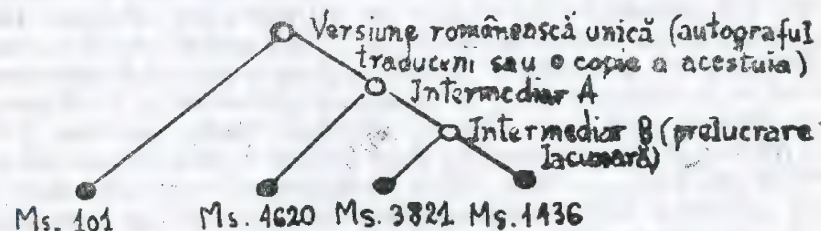 Versiune românească unică (autograful
traduceni sau o copie a acestuia)
Intermediar A
Intermediar B (prelucrare
lacunară)
Ms. 101 Ms. 4620 Ms. 3821 Ms. 1436